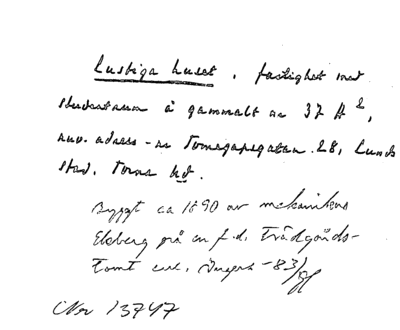 Lustiga huset, fastighet med
å gammalt nr 37 A²,
nuv. adress - nr Tornagapsgatan 28, Lunds
stad, Torna hd.
Byggt ca 1890 av mekanikus
Ekberg på en f.d. trädgårds-
tomt enl. -83/
Nr 13747